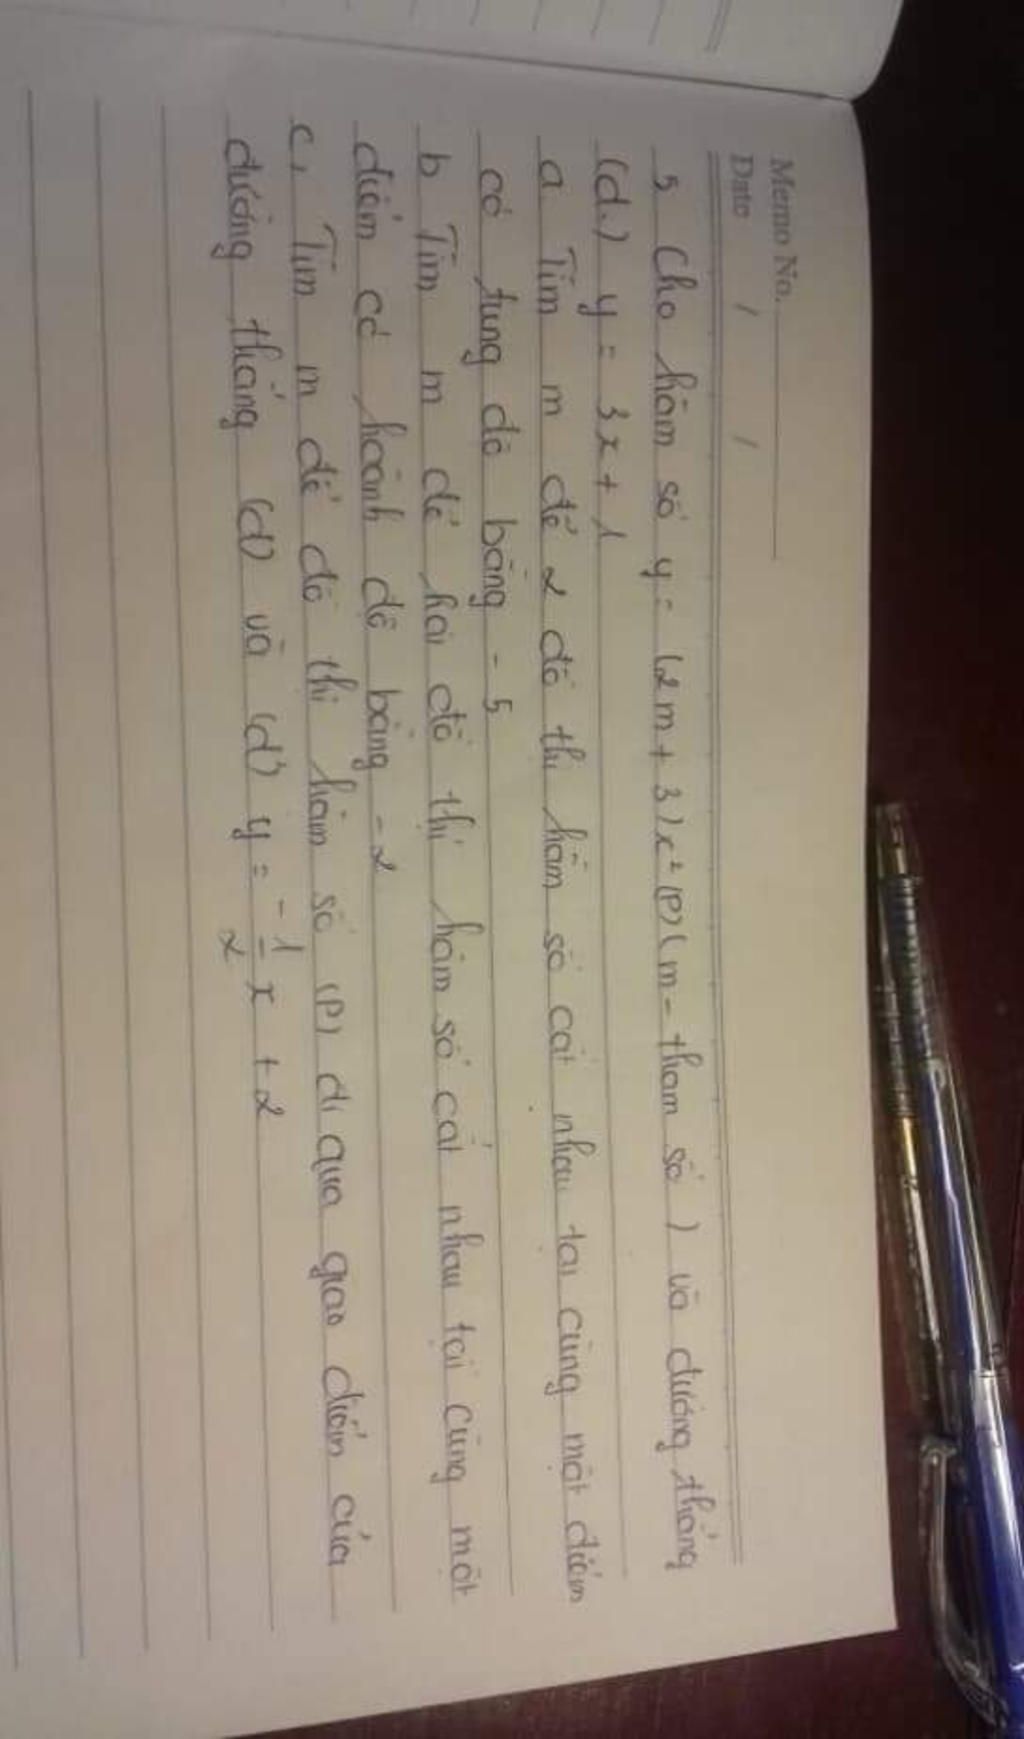 Memo No.
Date / /
5 Cho hàm số y = (2m + 3)x² (P) (m - tham số) và đường thẳng
(d.) y = 3x + 1
a. Tìm m để 2 đồ thị hàm số cắt nhau tại cùng một điểm
có tung độ bằng - 5
b Tìm m để hai đồ thị hàm số cắt nhau tại cùng một
điểm có hoành độ bằng - 2
c, Tìm m để đồ thị hàm số (P) đi qua giao điểm của
đường thẳng (d) và (d') y = -1/2 x + 2